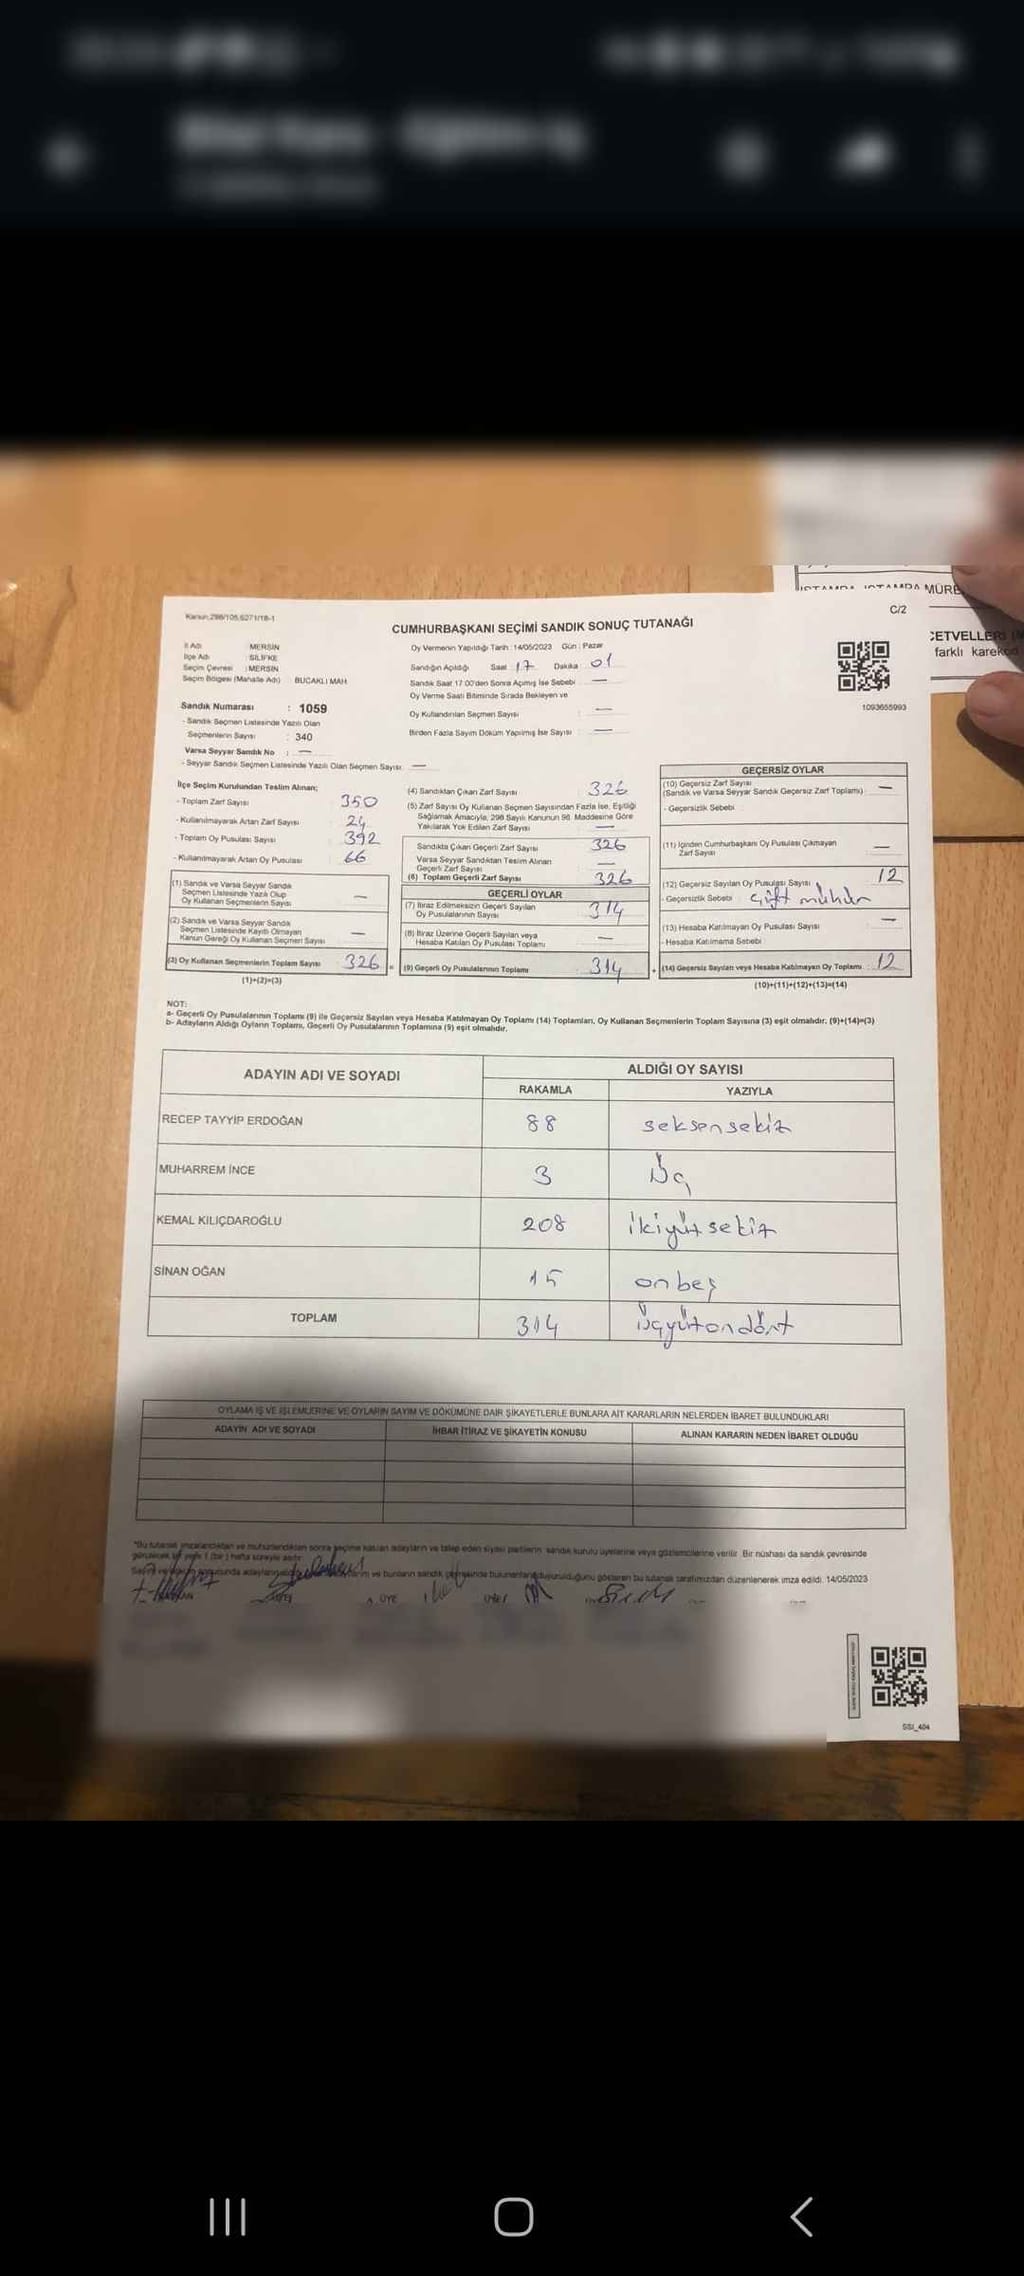 ISTAMPA, ISTAMPA MÜRE
CETVELLERİ
farklı karekod
Kanun:298/105,6271/18-1
C/2
CUMHURBAŞKANI SEÇİMİ SANDIK SONUÇ TUTANAĞI
İl Adı MERSİN
İlçe Adı SİLİFKE
Seçim Çevresi : MERSİN
Seçim Bölgesi (Mahalle Adı) BUCAKLI MAH
Sandık Numarası : 1059
- Sandık Seçmen Listesinde Yazılı Olan
Seçmenlerin Sayısı : 340
Varsa Seyyar Sandık No : —
- Seyyar Sandık Seçmen Listesinde Yazılı Olan Seçmen Sayısı: —
Oy Vermenin Yapıldığı Tarih : 14/05/2023 Gün : Pazar
Sandığın Açıldığı Saat 17 Dakika 01
Sandık Saat 17.00'den Sonra Açılmış İse Sebebi —
Oy Verme Saati Bitiminde Sırada Bekleyen ve
Oy Kullandırılan Seçmen Sayısı : —
Birden Fazla Sayım Döküm Yapılmış İse Sayısı : —
1093655993
İlçe Seçim Kurulundan Teslim Alınan;
- Toplam Zarf Sayısı 350
- Kullanılmayarak Artan Zarf Sayısı 24
- Toplam Oy Pusulası Sayısı 392
- Kullanılmayarak Artan Oy Pusulası 66
(1) Sandık ve Varsa Seyyar Sandık
Seçmen Listesinde Yazılı Olup
Oy Kullanan Seçmenlerin Sayısı —
(2) Sandık ve Varsa Seyyar Sandık
Seçmen Listesinde Kayıtlı Olmayan
Kanun Gereği Oy Kullanan Seçmen Sayısı —
(3) Oy Kullanan Seçmenlerin Toplam Sayısı 326
(1)+(2)=(3)
(4) Sandıktan Çıkan Zarf Sayısı 326
(5) Zarf Sayısı Oy Kullanan Seçmen Sayısından Fazla ise, Eşitliği
Sağlamak Amacıyla, 298 Sayılı Kanunun 98. Maddesine Göre
Yakılarak Yok Edilen Zarf Sayısı —
Sandıkta Çıkan Geçerli Zarf Sayısı 326
Varsa Seyyar Sandıktan Teslim Alınan
Geçerli Zarf Sayısı —
(6) Toplam Geçerli Zarf Sayısı 326
GEÇERLİ OYLAR
(7) İtiraz Edilmeksizin Geçerli Sayılan
Oy Pusulalarının Sayısı 314
(8) İtiraz Üzerine Geçerli Sayılan veya
Hesaba Katılan Oy Pusulası Toplamı —
= (9) Geçerli Oy Pusulalarının Toplamı 314
GEÇERSİZ OYLAR
(10) Geçersiz Zarf Sayısı
(Sandık ve Varsa Seyyar Sandık Geçersiz Zarf Toplamı) —
- Geçersizlik Sebebi
(11) İçinden Cumhurbaşkanı Oy Pusulası Çıkmayan
Zarf Sayısı —
(12) Geçersiz Sayılan Oy Pusulası Sayısı 12
- Geçersizlik Sebebi Çift mühür
(13) Hesaba Katılmayan Oy Pusulası Sayısı —
- Hesaba Katılmama Sebebi
+ (14) Geçersiz Sayılan veya Hesaba Katılmayan Oy Toplamı : 12
(10)+(11)+(12)+(13)=(14)
NOT:
a- Geçerli Oy Pusulalarının Toplamı (9) ile Geçersiz Sayılan veya Hesaba Katılmayan Oy Toplamı (14) Toplamları, Oy Kullanan Seçmenlerin Toplam Sayısına (3) eşit olmalıdır. (9)+(14)=(3)
b- Adayların Aldığı Oyların Toplamı, Geçerli Oy Pusulalarının Toplamına (9) eşit olmalıdır.
ADAYIN ADI VE SOYADI ALDIĞI OY SAYISI
RAKAMLA YAZIYLA
RECEP TAYYİP ERDOĞAN 88 seksensekiz
MUHARREM İNCE 3 Üç
KEMAL KILIÇDAROĞLU 208 ikiyüzsekiz
SİNAN OĞAN 15 onbeş
TOPLAM 314 üçyüzondört
OYLAMA İŞ VE İŞLEMLERİNE VE OYLARIN SAYIM VE DÖKÜMÜNE DAİR ŞİKAYETLERLE BUNLARA AİT KARARLARIN NELERDEN İBARET BULUNDUKLARI
ADAYIN ADI VE SOYADI İHBAR İTİRAZ VE ŞİKAYETİN KONUSU ALINAN KARARIN NEDEN İBARET OLDUĞU
*Bu tutanak imzalandıktan ve mühürlendikten sonra seçime katılan adayların ve talep eden siyasi partilerin sandık kurulu üyelerine veya gözlemcilerine verilir. Bir nüshası da sandık çevresinde
görülecek bir yere 1 (bir) hafta süreyle asılır.
ve bunların sandık çevresinde bulunanlara duyurulduğunu gösteren bu tutanak tarafımızdan düzenlenerek imza edildi. 14/05/2023
ÜYE
SSI_404